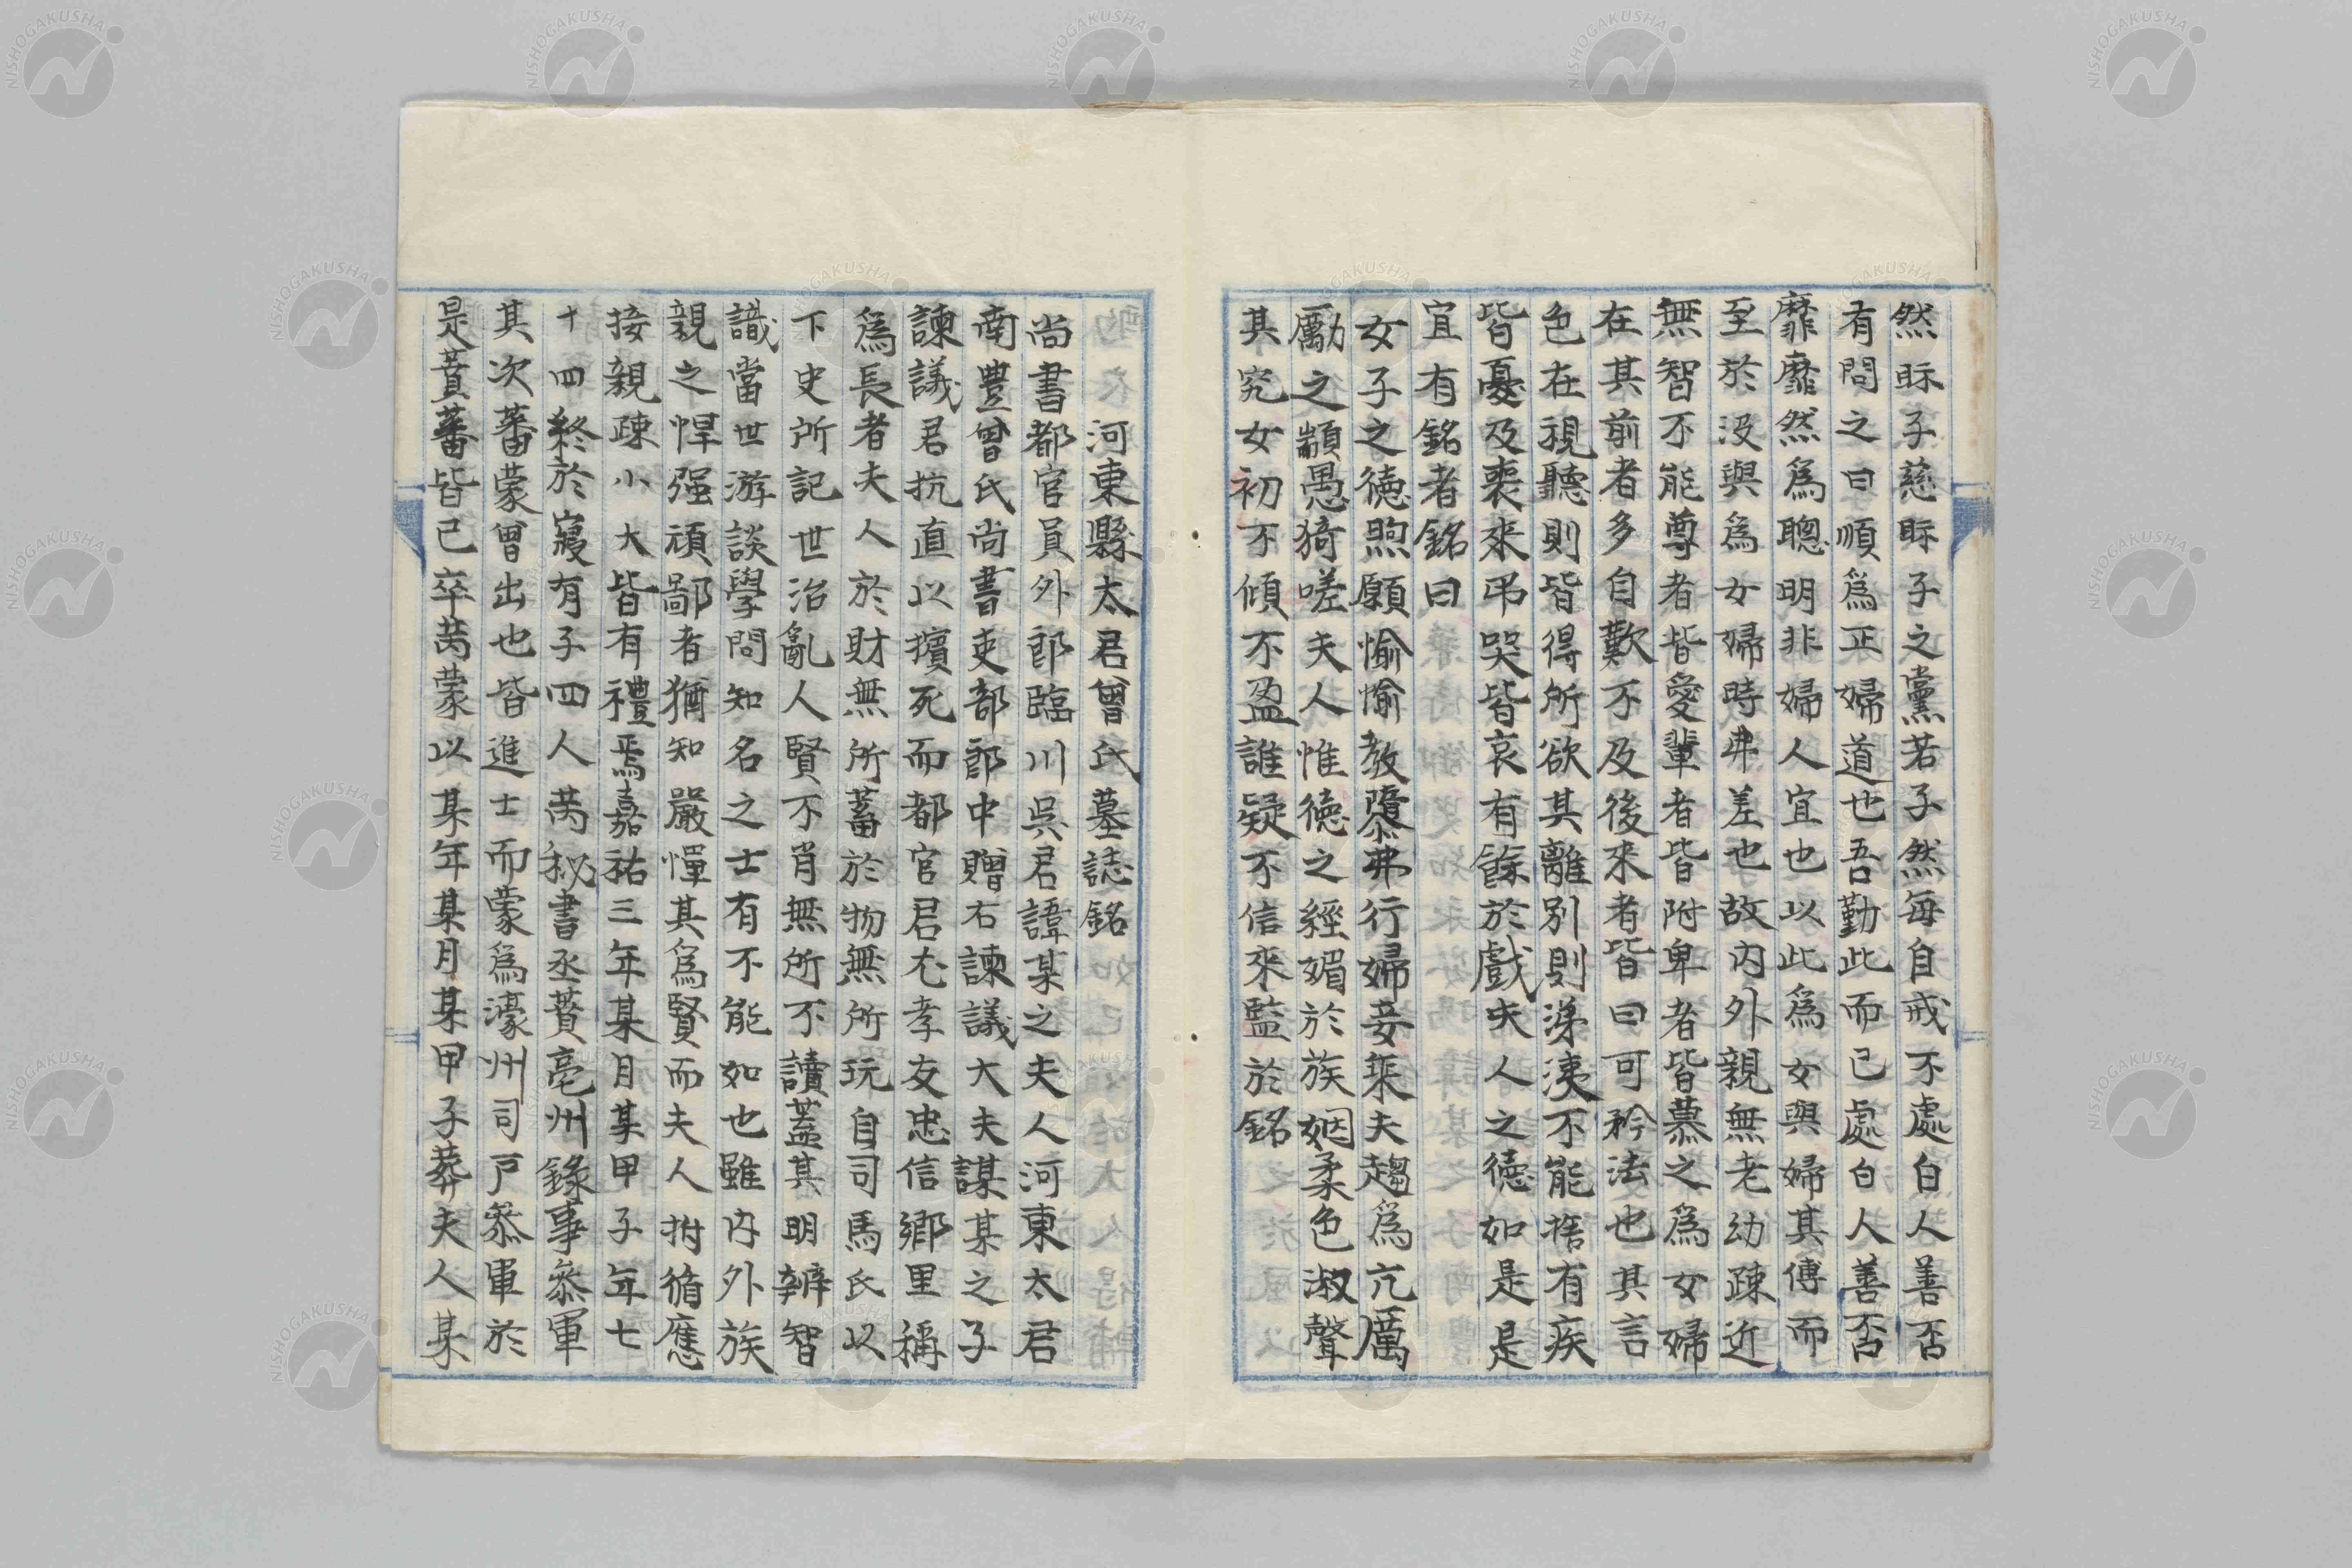 然眎子慈眎子之黨若子然每自戒不處白人善否
有問之曰順爲正婦道也吾勤此而已處白人善否
靡靡然爲聰明非婦人宜也以此爲女與婦其傅而
至於沒與爲女婦時弗差也故内外親無老幼疎近
無智不能尊者皆愛輩者皆附卑者皆慕之爲女婦
在其前者多自歎不及後來者皆曰可矜法也其言
色在視聽則皆得所欲其離別則涕洟不能捨有疾
皆憂及喪來弔哭皆哀有餘於戲夫人之德如是是
宜有銘者銘曰
女子之德煦願愉愉教隳弗行婦妾乘夫趨爲亢厲
勵之顓愚猗嗟夫人惟德之經媚於族姻柔色淑聲
其究女初不傾不盈誰疑不信來監於銘
河東縣太君曾氏墓誌銘
尚書都官員外郎臨川吳君諱某之夫人河東太君
南豊曾氏尚書吏部郎中贈右諫議大夫謀某之子
諫議君抗直以擯死而都官君尤孝友忠信鄉里稱
爲長者夫人於財無所蓄於物無所玩自司馬氏以
下史所記世治亂人賢不肖無所不讀蓋其明辨智
識當世游談學問知名之士有不能如也雖内外族
親之悍强頑鄙者猶知嚴憚其爲賢而夫人拊循應
接親疎小大皆有禮焉嘉祐三年某月某甲子年七
十四終於寢有子四人芮秘書丞蕡亳州錄事參軍
其次蕃蒙曾出也皆進士而蒙爲濠州司戸參軍於
是蕡蕃皆已卒芮蒙以某年某月某甲子葬夫人某
NISHOGAKUSHA